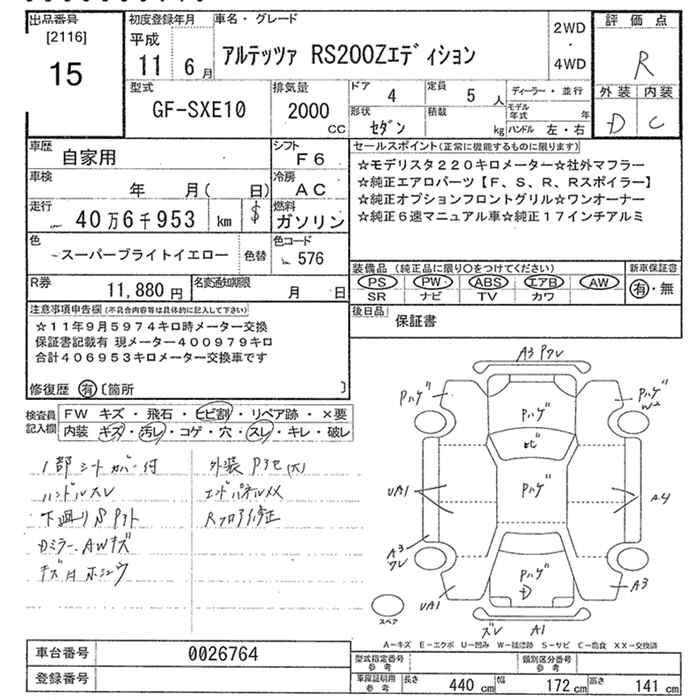 出品番号
[2116]
15
初度登録年月
平成
11 6 月
車名・グレード
アルテッツァ RS200Zエディション
2WD
・
4WD
評価点
R
外装 内装
D C
型式
GF-SXE10
排気量
2000
CC
ドア 4
定員 5 人
形状 セダン
積載 kg
ディーラー・並行
モデル年式 年
ハンドル 左・右
車歴
自家用
シフト
F6
車検
年 月( 日)
冷房
AC
走行
40万6千953 km $
燃料
ガソリン
色
スーパーブライトイエロー
色替
色コード
№ 576
R券
11,880 円
名変通知期限
月 日
セールスポイント(正常に機能するものに限ります)
☆モデリスタ220キロメーター☆社外マフラー
☆純正エアロパーツ【F、S、R、Rスポイラー】
☆純正オプションフロントグリル☆ワンオーナー
☆純正6速マニュアル車☆純正17インチアルミ
装備品(純正品に限り○をつけてください)
PS PW ABS エアB AW
SR ナビ TV カワ
新車保証書
有・無
後日品
保証書
注意事項申告欄(不具合内容等は具体的に記入して下さい)
☆11年9月5974キロ時メーター交換
保証書記載有 現メーター400979キロ
合計406953キロメーター交換車です
修復歴 有 [箇所 ]
検査員記入欄
FW キズ・飛石・ヒビ割・リペア跡・×要
内装 キズ・汚レ・コゲ・穴・スレ・キレ・破レ
1部シートカバー付
ハンドルスレ
下廻りSアト
Dミラー、AWキズ
キズ有 ホシュウ
外装Pアセ(大)
エンドパネルXX
Rフロア修正
A3 ワレ
Pハゲ
Pハゲ
Pハゲ
W2
ヒビ
Pハゲ
UA1
A4
A3
ワレ
Pハゲ
D
UA1
A3
ズレ A1
スペア
A－キズ E－エクボ U－凹み W－補修跡 S－サビ C－腐食 XX－交換済
車台番号
0026764
登録番号
型式指定番号
参考
類別区分番号
参考
車庫証明用
参考
長さ 440 cm
幅 172 cm
高さ 141 cm